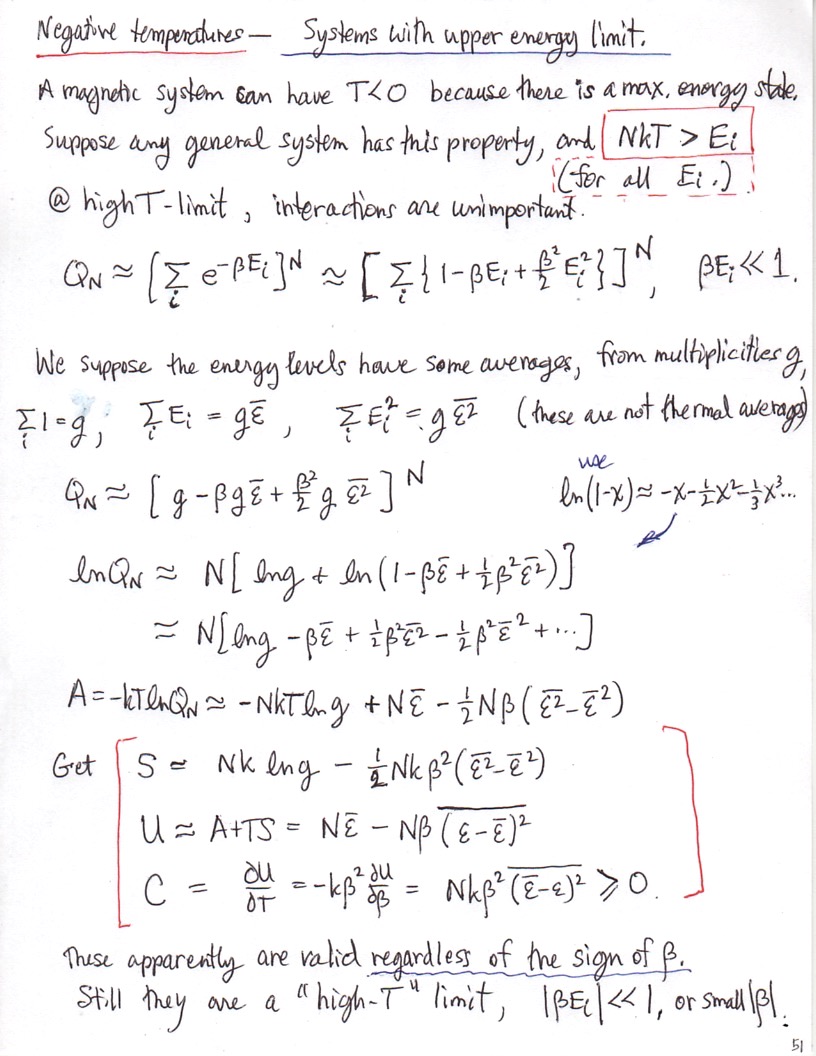 Negative temperatures — Systems with upper energy limit.
A magnetic system can have T<0 because there is a max. energy state.
Suppose any general system has this property, and NkT > Eᵢ
(for all Eᵢ.)
@ high T-limit, interactions are unimportant.
Q_N ≈ [∑ᵢ e^{-βEᵢ}]^N ≈ [∑ᵢ{1-βEᵢ+β²/2 Eᵢ²}]^N, βEᵢ ≪ 1.
We suppose the energy levels have some averages, from multiplicities g,
∑ᵢ1=g, ∑ᵢEᵢ = gε̅, ∑ᵢEᵢ² = g \overline{ε²} (these are not thermal averages)
Q_N ≈ [g - βgε̅ + β²/2 g \overline{ε²}]^N
use
ln(1-x) ≈ -x-½x²-⅓x³...
lnQ_N ≈ N[lng + ln(1-βε̅ + ½β²\overline{ε²})]
≈ N[lng - βε̅ + ½β²\overline{ε²} - ½β²ε̅² + ...]
A = -kTlnQ_N ≈ -NkTlng + Nε̅ - ½Nβ(\overline{ε²}-ε̅²)
Get S ≃ Nk lng - ½Nkβ²(\overline{ε²}-ε̅²)
U ≈ A+TS = Nε̅ - Nβ\overline{(ε-ε̅)²}
C = ∂U/∂T = -kβ² ∂U/∂β = Nkβ²\overline{(ε̅-ε)²} ⩾ 0.
These apparently are valid regardless of the sign of β.
Still they are a "high-T" limit, |βEᵢ| ≪ 1, or small |β|.
51